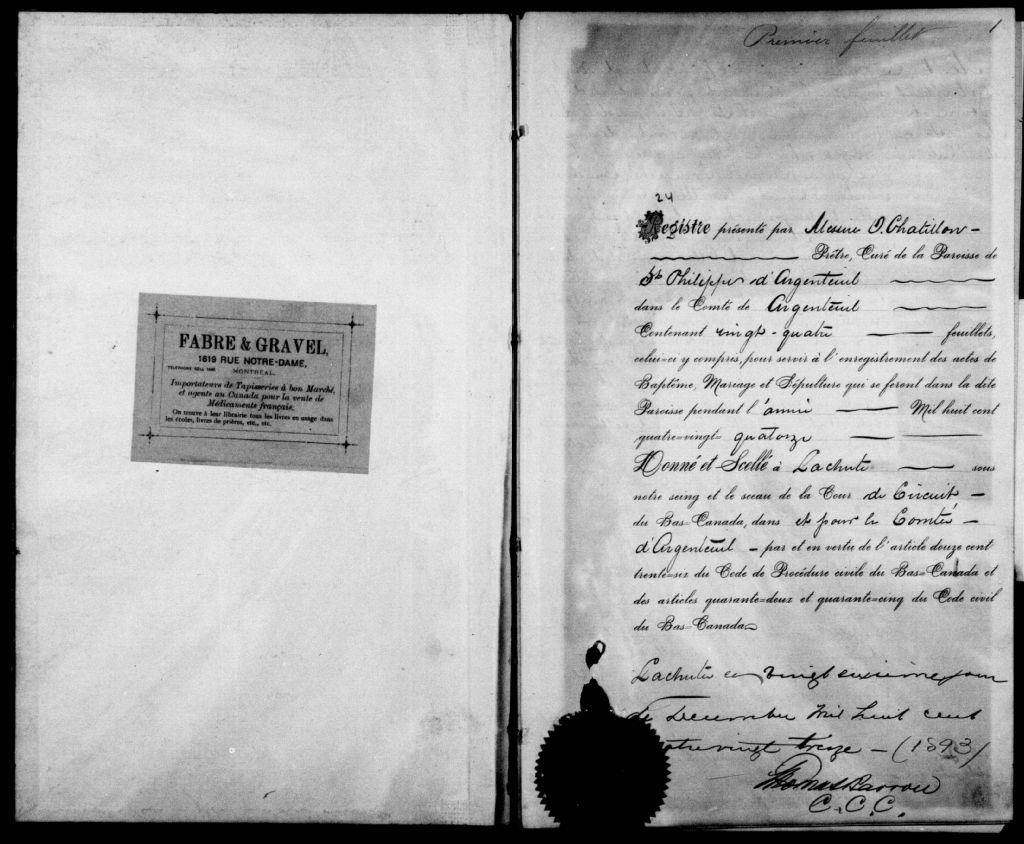 FABRE & GRAVEL,
1619 RUE NOTRE-DAME,
MONTREAL.
Importateurs de Tapisseries à bon Marché,
et agents au Canada pour la vente de
Médicaments français.
On trouve à leur librairie tous les livres en usage dans
les écoles, livres de prières, etc., etc.
Premier feuillet 1
24
Registre présenté par Messire O. Chatillon
Prêtre, Curé de la Paroisse de
St Philippe d'Argenteuil
dans le Comté de Argenteuil
Contenant vingt-quatre feuillets,
celui-ci y compris, pour servir à l'enregistrement des actes de
Baptême, Mariage et Sépulture qui se feront dans la dite
Paroisse pendant l'année Mil huit cent
quatre-vingt quatorze
Donné et Scellé à Lachute sous
notre seing et le sceau de la Cour de Circuit
du Bas-Canada, dans et pour le Comté
d'Argenteuil - par et en vertu de l'article douze cent
trente-six du Code de Procédure civile du Bas-Canada et
des articles quarante-deux et quarante-cinq du Code civil
du Bas-Canada
Lachute ce vingt sixieme jour
de Decembre Mil huit cent
quatre vingt treize - (1893)
Thomas Barron
C.C.C.